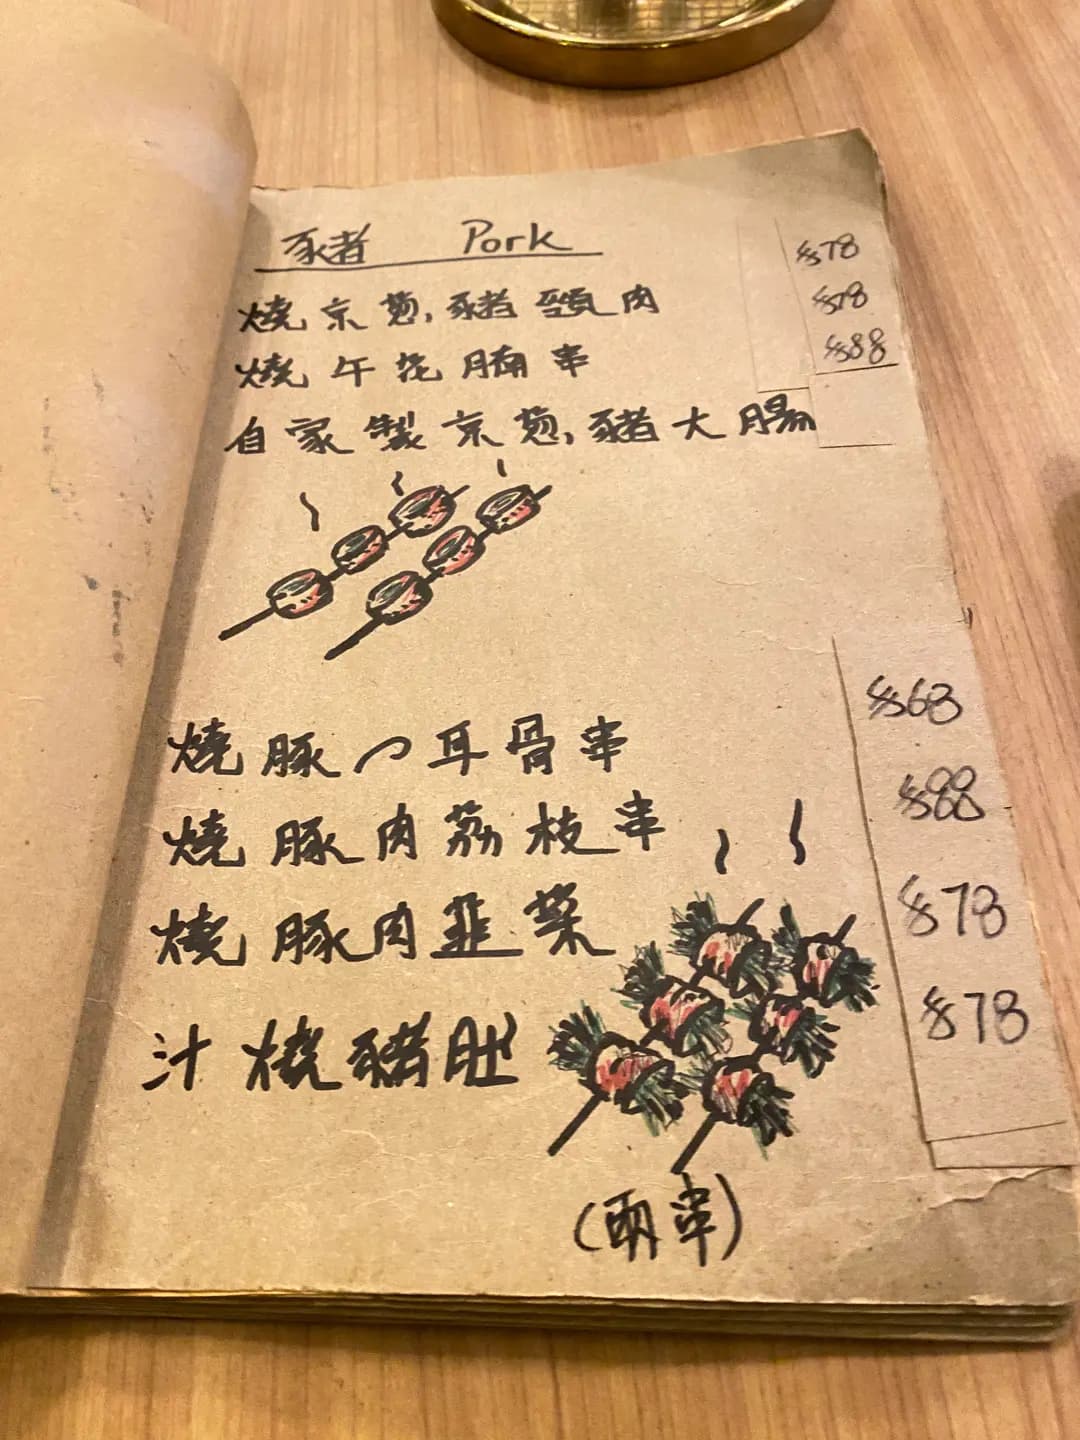 豬 Pork
燒京葱,豬頸肉 $78
燒午花腩串 $78
自家製京葱,豬大腸 $88
燒豚心耳骨串 $68
燒豚肉荔枝串 $88
燒豚肉韭菜 $78
汁燒豬肚 $78
(兩串)